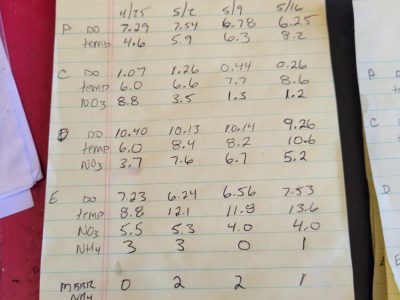 4/25 5/2 5/9 5/16
P DO 7.29 7.54 6.78 6.25
temp 4.6 5.9 6.3 8.2
C DO 1.07 1.26 0.44 0.26
temp 6.0 6.6 7.7 8.6
NO3 8.8 3.5 1.3 1.2
D DO 10.40 10.13 10.14 9.26
temp 6.0 8.4 8.2 10.6
NO3 3.7 7.6 6.7 5.2
E DO 7.23 6.24 6.56 7.53
temp 8.8 12.1 11.9 13.6
NO3 5.5 5.3 4.0 4.0
NH4 3 3 0 1
MBBR 0 2 2 1
NH4
A
C
D
E